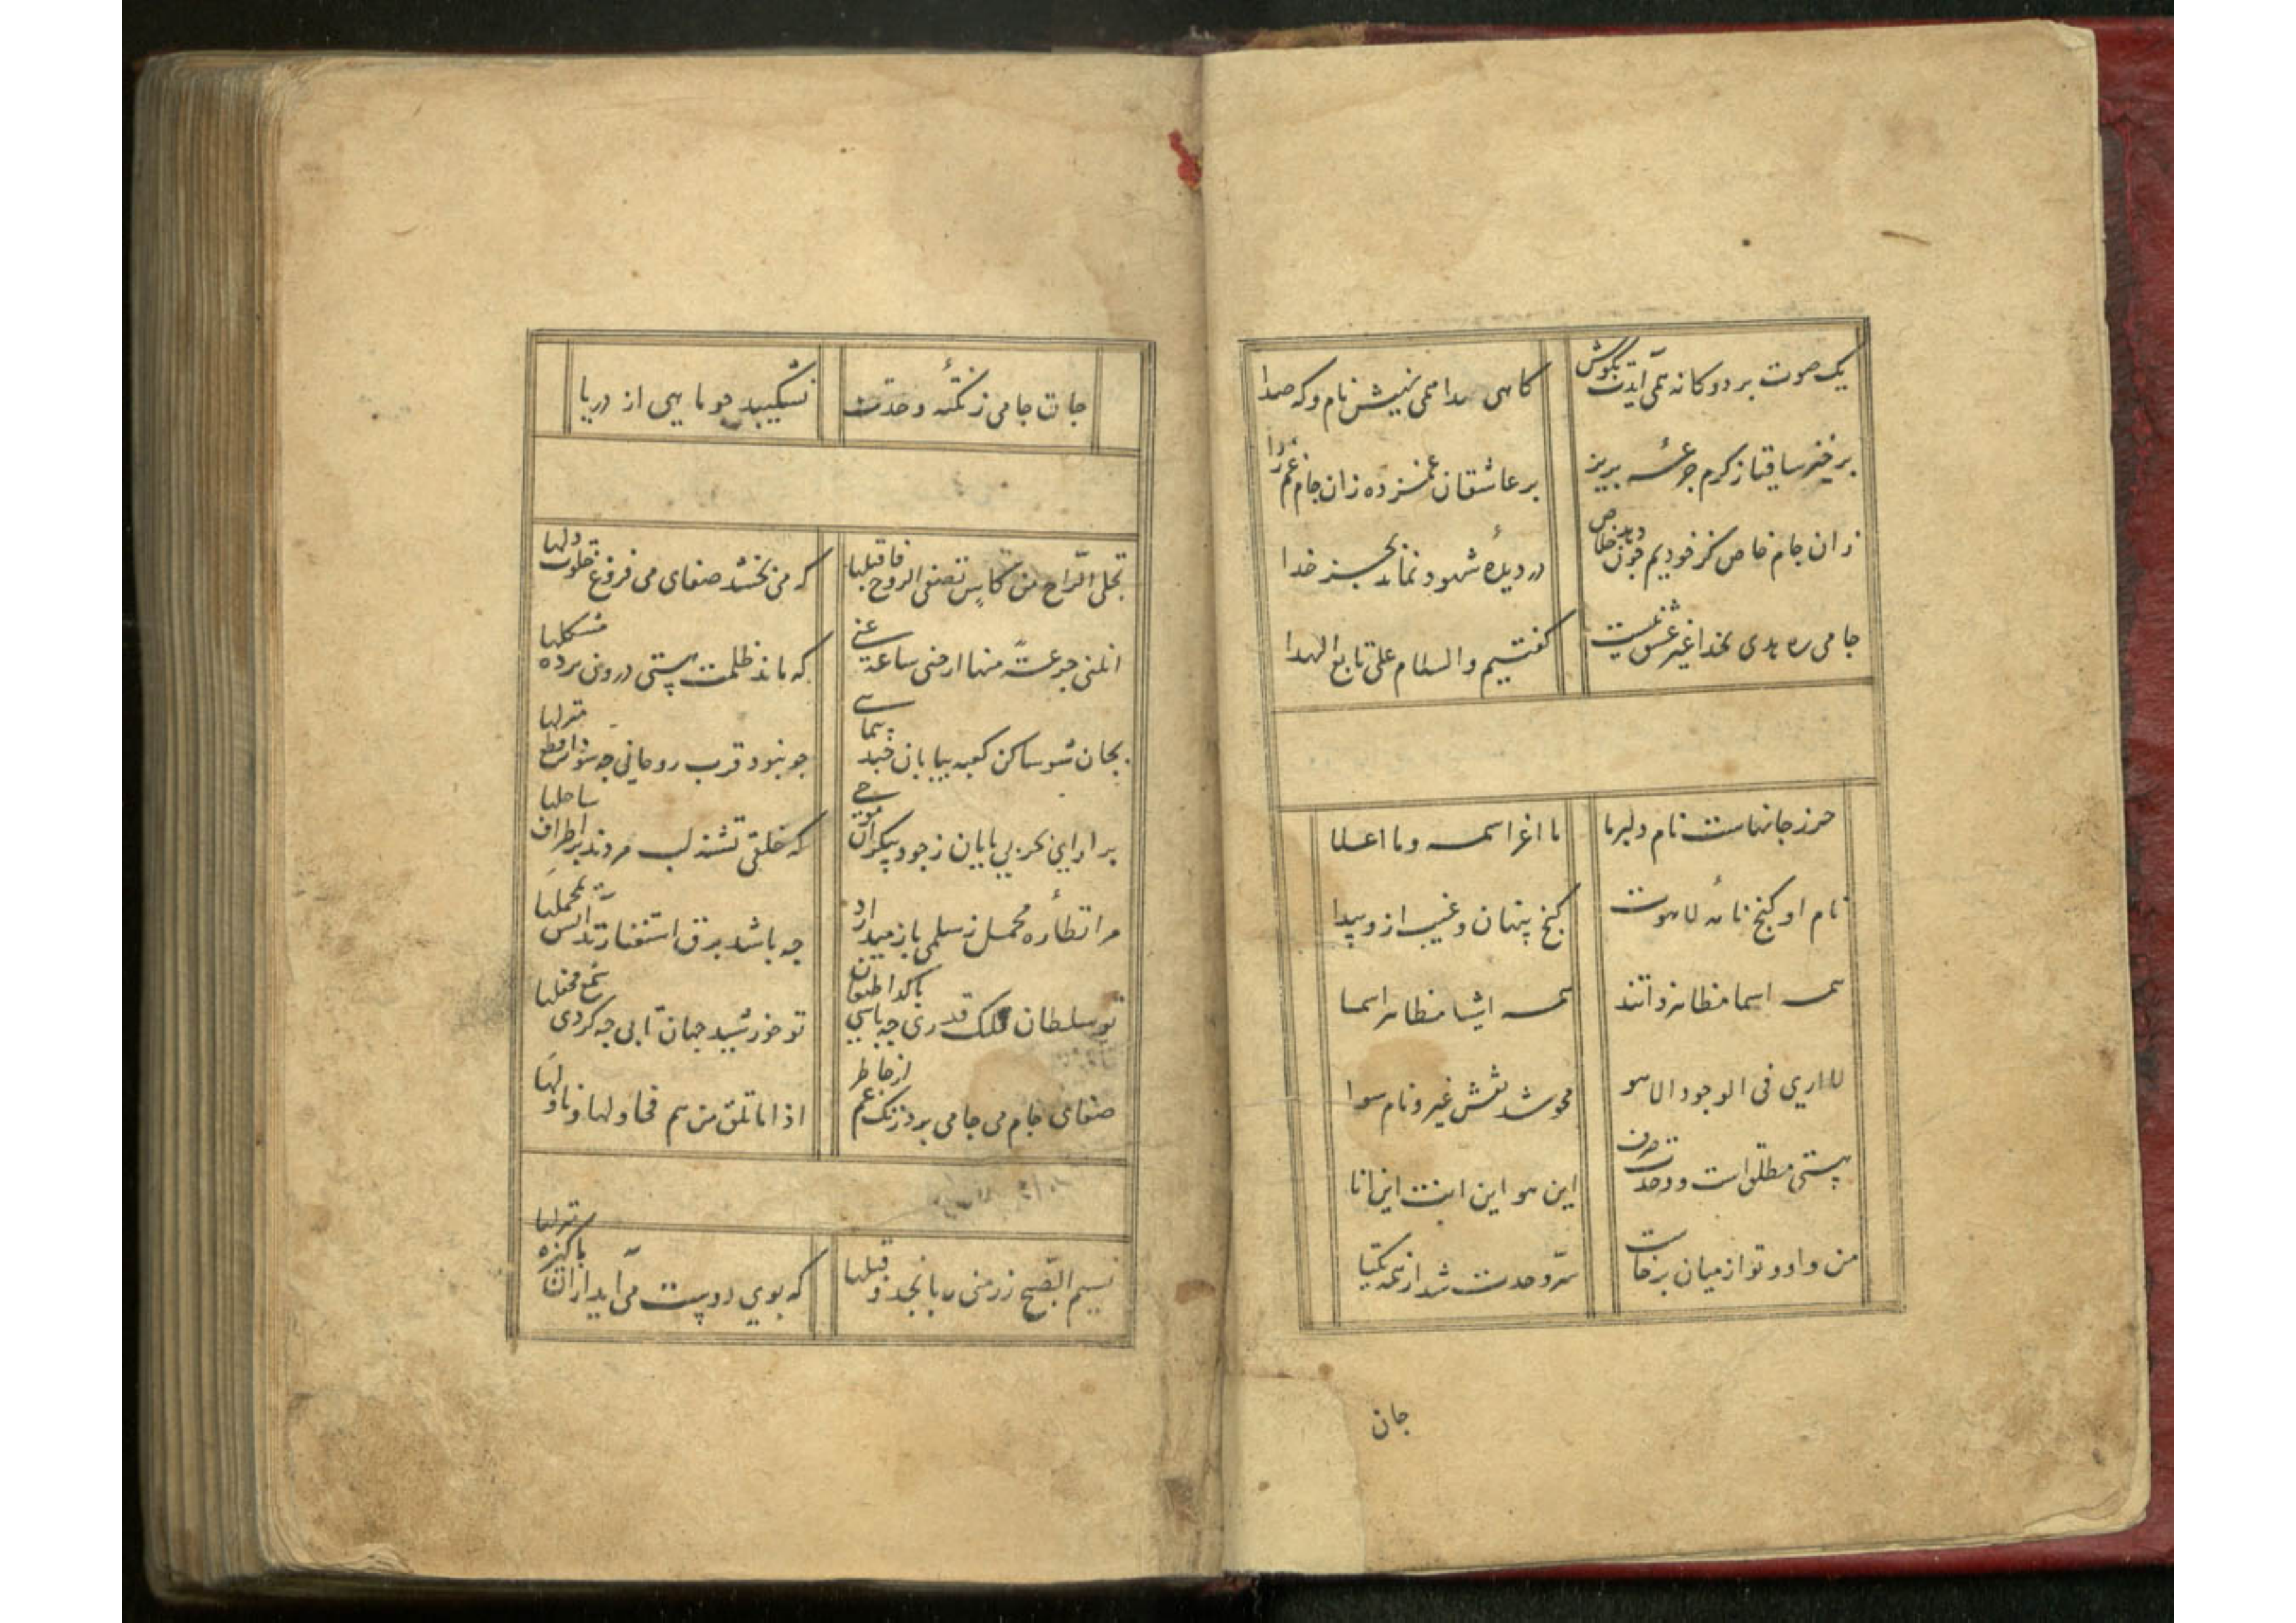 یک صوت بر دو کانه همی آیدت بکوش
کاهی ندا همی نهیش نام و که صدا
بر خیز ساقیا ز کرم جرعهٔ بریز
بر عاشقان غمزده زان جام غم زدا
زان جام خاص کز خودیم چون دهد خلاص
در دیدهٔ شهود نماند بجز خدا
جامی ره هدی بخدا غیر عشق نیست
کفتیم والسلام علی تابع الهدا
حرز جانهاست نام دلبر ما
ما اعز اسمه وما اعلا
نام او کنج نامهٔ لاهوت
کنج پنهان و غیب ازو پیدا
همه اسما مظاهر ذاتند
همه اشیا مظاهر اسما
لا اری فی الوجود الا هو
محو شد نقش غیر و نام سوا
هستی مطلق است و وحدت صرف
این هو این انت این انا
من و او و تو از میان برخاست
سر وحدت شد از همه یکتا
جان
جان جامی ز نکتهٔ وحدت
نشکیبد چو ماهی از دریا
تجلی الراح من کاس تصفی الروح فاقبلها
که می بخشد صفای می فروغ خلوت دلها
انلنی جرعة منها ارحنی ساعة عنی
که ماند از ظلمت هستی درون پرده مشکلها
بجان شو ساکن کعبه بیابان چند پیمایی
چو نبود قرب روحانی چه سود از قطع منزلها
بر ار ای بحر بی پایان ز جود بیکران موجی
که خلقی تشنه لب مردند بر اطراف ساحلها
مرا نظاره محمل ز سلمی باز میدارد
چه باشد برق استغنا زند اتش بمحملها
تو سلطان فلک قدری چه باشی با کدا طبعان
تو خورشید جهان تابی چه کردی شمع محفلها
صفای جام می جامی برد زنک غم از خاطر
اذا ما تلق من هم فحاولها و ناولها
نسیم الصبح زر منی ربا نجد و قبلها
که بوی دوست می آید از ان پاکیزه منزلها